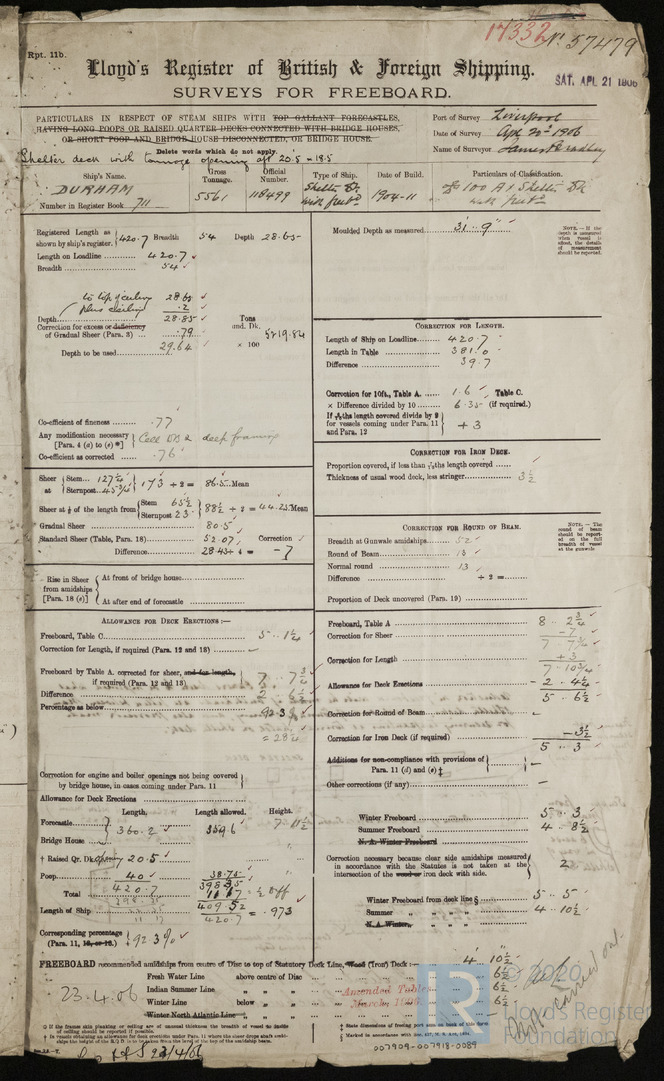 Rpt. 11b.
17332
No. 57479
Lloyd's Register of British & Foreign Shipping.
SAT. APL 21 1906
SURVEYS FOR FREEBOARD.
PARTICULARS IN RESPECT OF STEAM SHIPS WITH TOP GALLANT FORECASTLES,
HAVING LONG POOPS OR RAISED QUARTER DECKS CONNECTED WITH BRIDGE HOUSES,
OR SHORT POOP AND BRIDGE HOUSE DISCONNECTED, OR BRIDGE HOUSE.
Delete words which do not apply.
Shelter deck with tonnage opening aft 20.5 - 18.5
Port of Survey Liverpool
Date of Survey Apl 20th 1906
Name of Surveyor James Bradley
Ship's Name. Gross Tonnage. Official Number. Type of Ship. Date of Build. Particulars of Classification.
DURHAM 5561 118499 Shelter Dk with freebd 1904-11 100 A1 Shelter Dk with freebd
Number in Register Book 711
Registered Length as shown by ship's register. 420.7 Breadth 54 Depth 28.65
Length on Loadline 420.7
Breadth 54
to top of ceiling 28.65
plus ceiling .2
Depth 28.85
Correction for excess or deficiency of Gradual Sheer (Para. 3) .79
Depth to be used 29.64
Tons und. Dk. 5219.84
× 100
Co-efficient of fineness .77
Any modification necessary [Para. 4 (a) to (e)*] Cell DB & deep framing
Co-efficient as corrected .76
Sheer at Stem 127 1/4 Sternpost 45 3/4 173 ÷ 2 = 86.5 Mean
Sheer at 1/8 of the length from Stem 65 1/2 Sternpost 23 88 1/2 ÷ 2 = 44.25 Mean
Gradual Sheer 80.5
Standard Sheer (Table, Para. 18) 52.07 Correction
Difference 28.43 ÷ 4 = - 7
Rise in Sheer from amidships [Para. 18 (e)] At front of bridge house
At after end of forecastle
ALLOWANCE FOR DECK ERECTIONS :—
Freeboard, Table C 5 . 1 1/4
Correction for Length, if required (Para. 12 and 13) —
Freeboard by Table A. corrected for sheer, and for length, if required (Para. 12 and 13) 7 . 7 3/4
Difference 2 . 6 1/2
Percentage as below 92.3%
= 28 1/4
Correction for engine and boiler openings not being covered by bridge house, in cases coming under Para. 11
Allowance for Deck Erections
Length. Length allowed. Height.
Forecastle
Bridge House 360.2 359.6 7' 11 1/2
† Raised Qr. Dk. opening 20.5
Poop 40 38.75
Total 420.7 398.35
11.17 = 1/2 diff
409.52
Length of Ship 420.7 = .973
Corresponding percentage (Para. 11, 12, or 13.) 92.3%
Moulded Depth as measured 31' . 9"
NOTE.—If the depth is measured when vessel is afloat, the details of measurement should be reported.
CORRECTION FOR LENGTH.
Length of Ship on Loadline 420.7
Length in Table 381.0
Difference 39.7
Correction for 10ft., Table A. 1.6 Table C.
× Difference divided by 10 6.35 (if required.)
If 6/10ths length covered divide by 2 for vessels coming under Para. 11 and Para. 12 + 3
CORRECTION FOR IRON DECK.
Proportion covered, if less than 7/10ths length covered
Thickness of usual wood deck, less stringer 3 1/2
CORRECTION FOR ROUND OF BEAM.
NOTE.—The round of beam should be reported on the full breadth of vessel at the gunwale
Breadth at Gunwale amidships 52
Round of Beam 13
Normal round 13
Difference ÷ 2 =
Proportion of Deck uncovered (Para. 19)
Freeboard, Table A 8 . 2 3/4
Correction for Sheer - 7
7 . 7 3/4
Correction for Length + 3
7 . 10 3/4
Allowance for Deck Erections - 2 . 4 1/4
5 . 6 1/2
Correction for Round of Beam —
Correction for Iron Deck (if required) - 3 1/2
5 . 3
Additions for non-compliance with provisions of Para. 11 (d) and (e) ‡ —
Other corrections (if any) —
Winter Freeboard 5 . 3
Summer Freeboard 4 . 8 1/2
N. A. Winter Freeboard
Correction necessary because clear side amidships measured in accordance with the Statutes is not taken at the intersection of the wood or iron deck with side. 2
Winter Freeboard from deck line § 5 . 5
Summer " " " " 4 . 10 1/2
N.A. Winter " " " "
FREEBOARD recommended amidships from centre of Disc to top of Statutory Deck Line, Wood (Iron) Deck :— 4' 10 1/2"
Fresh Water Line above centre of Disc 6 1/2
Indian Summer Line " " 6 1/2
Winter Line below " " 6 1/2
Winter North Atlantic Line " "
23.4.06
Amended Tables
March, 1906.
© 2020
LR
Lloyd's Register
Foundation
007909-007918-0089